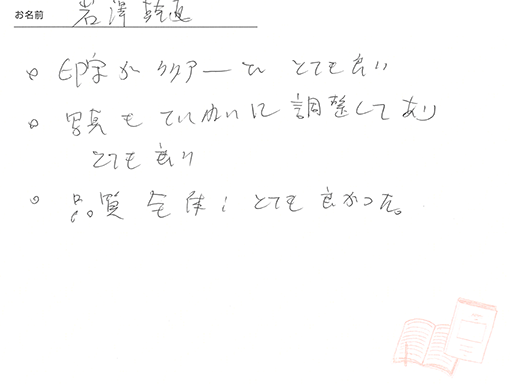 お名前 岩澤
○ 印字がクリアーで とても良い
○ 写真もていねいに調整してあり
とても良い
○ 品質全体に とても良かった。